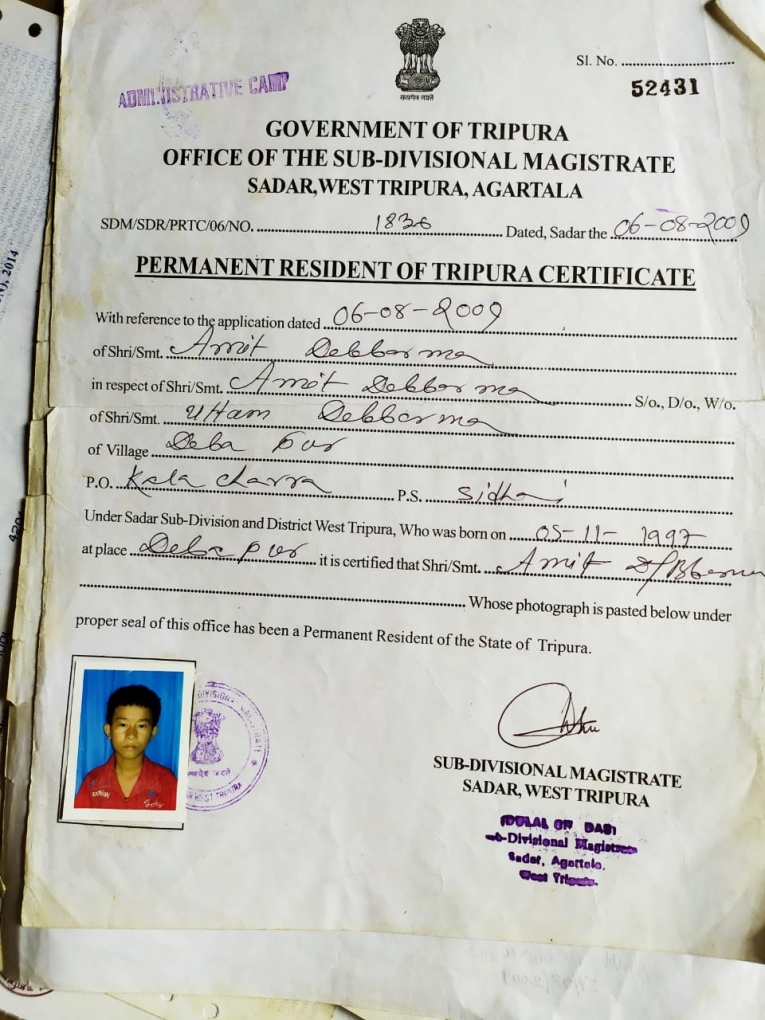 ADMINISTRATIVE CAMP
सत्यमेव जयते
Sl. No. ..............................
52431
GOVERNMENT OF TRIPURA
OFFICE OF THE SUB-DIVISIONAL MAGISTRATE
SADAR,WEST TRIPURA, AGARTALA
SDM/SDR/PRTC/06/NO. 1836 Dated, Sadar the 06-08-2009
PERMANENT RESIDENT OF TRIPURA CERTIFICATE
With reference to the application dated 06-08-2009
of Shri/Smt. Amit Debbarma
in respect of Shri/Smt. Amit Debbarma S/o., D/o., W/o.
of Shri/Smt. Uttam Debbarma
of Village Deba pur
P.O. Kala charra P.S. Sidhai
Under Sadar Sub-Division and District West Tripura, Who was born on 05-11-1997
at place Deba pur it is certified that Shri/Smt. Amit
Whose photograph is pasted below under
proper seal of this office has been a Permanent Resident of the State of Tripura.
SUB-DIVISIONAL MAGISTRATE
SADAR, WEST TRIPURA
Sub-Divisional Magistrate
Sadar, Agartala,
West Tripura.
2014